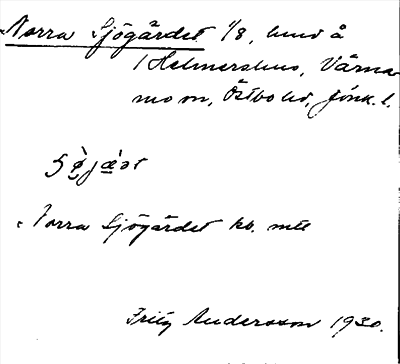 Norra Sjögärdet 1/8, hmd å
1 Helmershus, Värna-
mo sn, Östbo hd, Jönk. l.
Norra Sjögärdet kb. mtl
Fritz Andersson 1930.